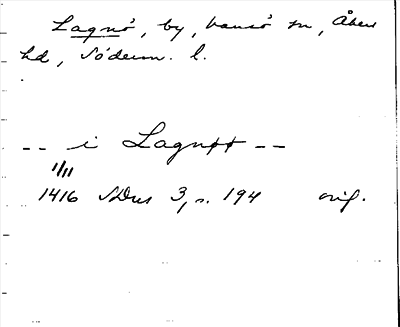 Lagnö, by, Vansö sn, Åkers
hd, Söderm. l.
-- i Lagnøø --
1/11
1416 SDns 3, s. 194 orig.